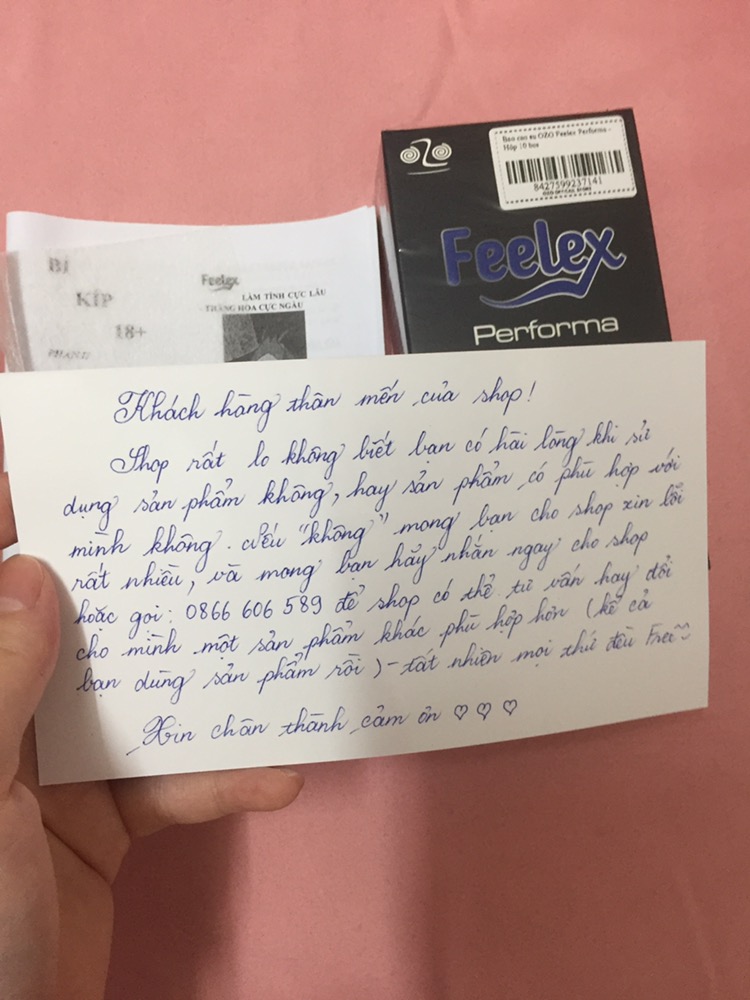 OZO
Bao cao su OZO Feelex Performa -
Hộp 10 bcs
8427599237141
Feelex
Performa
BÍ
KÍP
18+
Feelex
LÀM TÌNH CỰC LÂU
- THĂNG HOA CỰC NGẦU
Khách hàng thân mến của shop!
Shop rất lo không biết bạn có hài lòng khi sử
dụng sản phẩm không, hay sản phẩm có phù hợp với
mình không. Nếu "không" mong bạn cho shop xin lỗi
rất nhiều, và mong bạn hãy nhắn ngay cho shop
hoặc gọi: 0866 606 589 để shop có thể tư vấn hay đổi
cho mình một sản phẩm khác phù hợp hơn (kể cả
bạn dùng sản phẩm rồi) - tất nhiên mọi thứ đều Free
Xin chân thành cảm ơn ♡ ♡ ♡